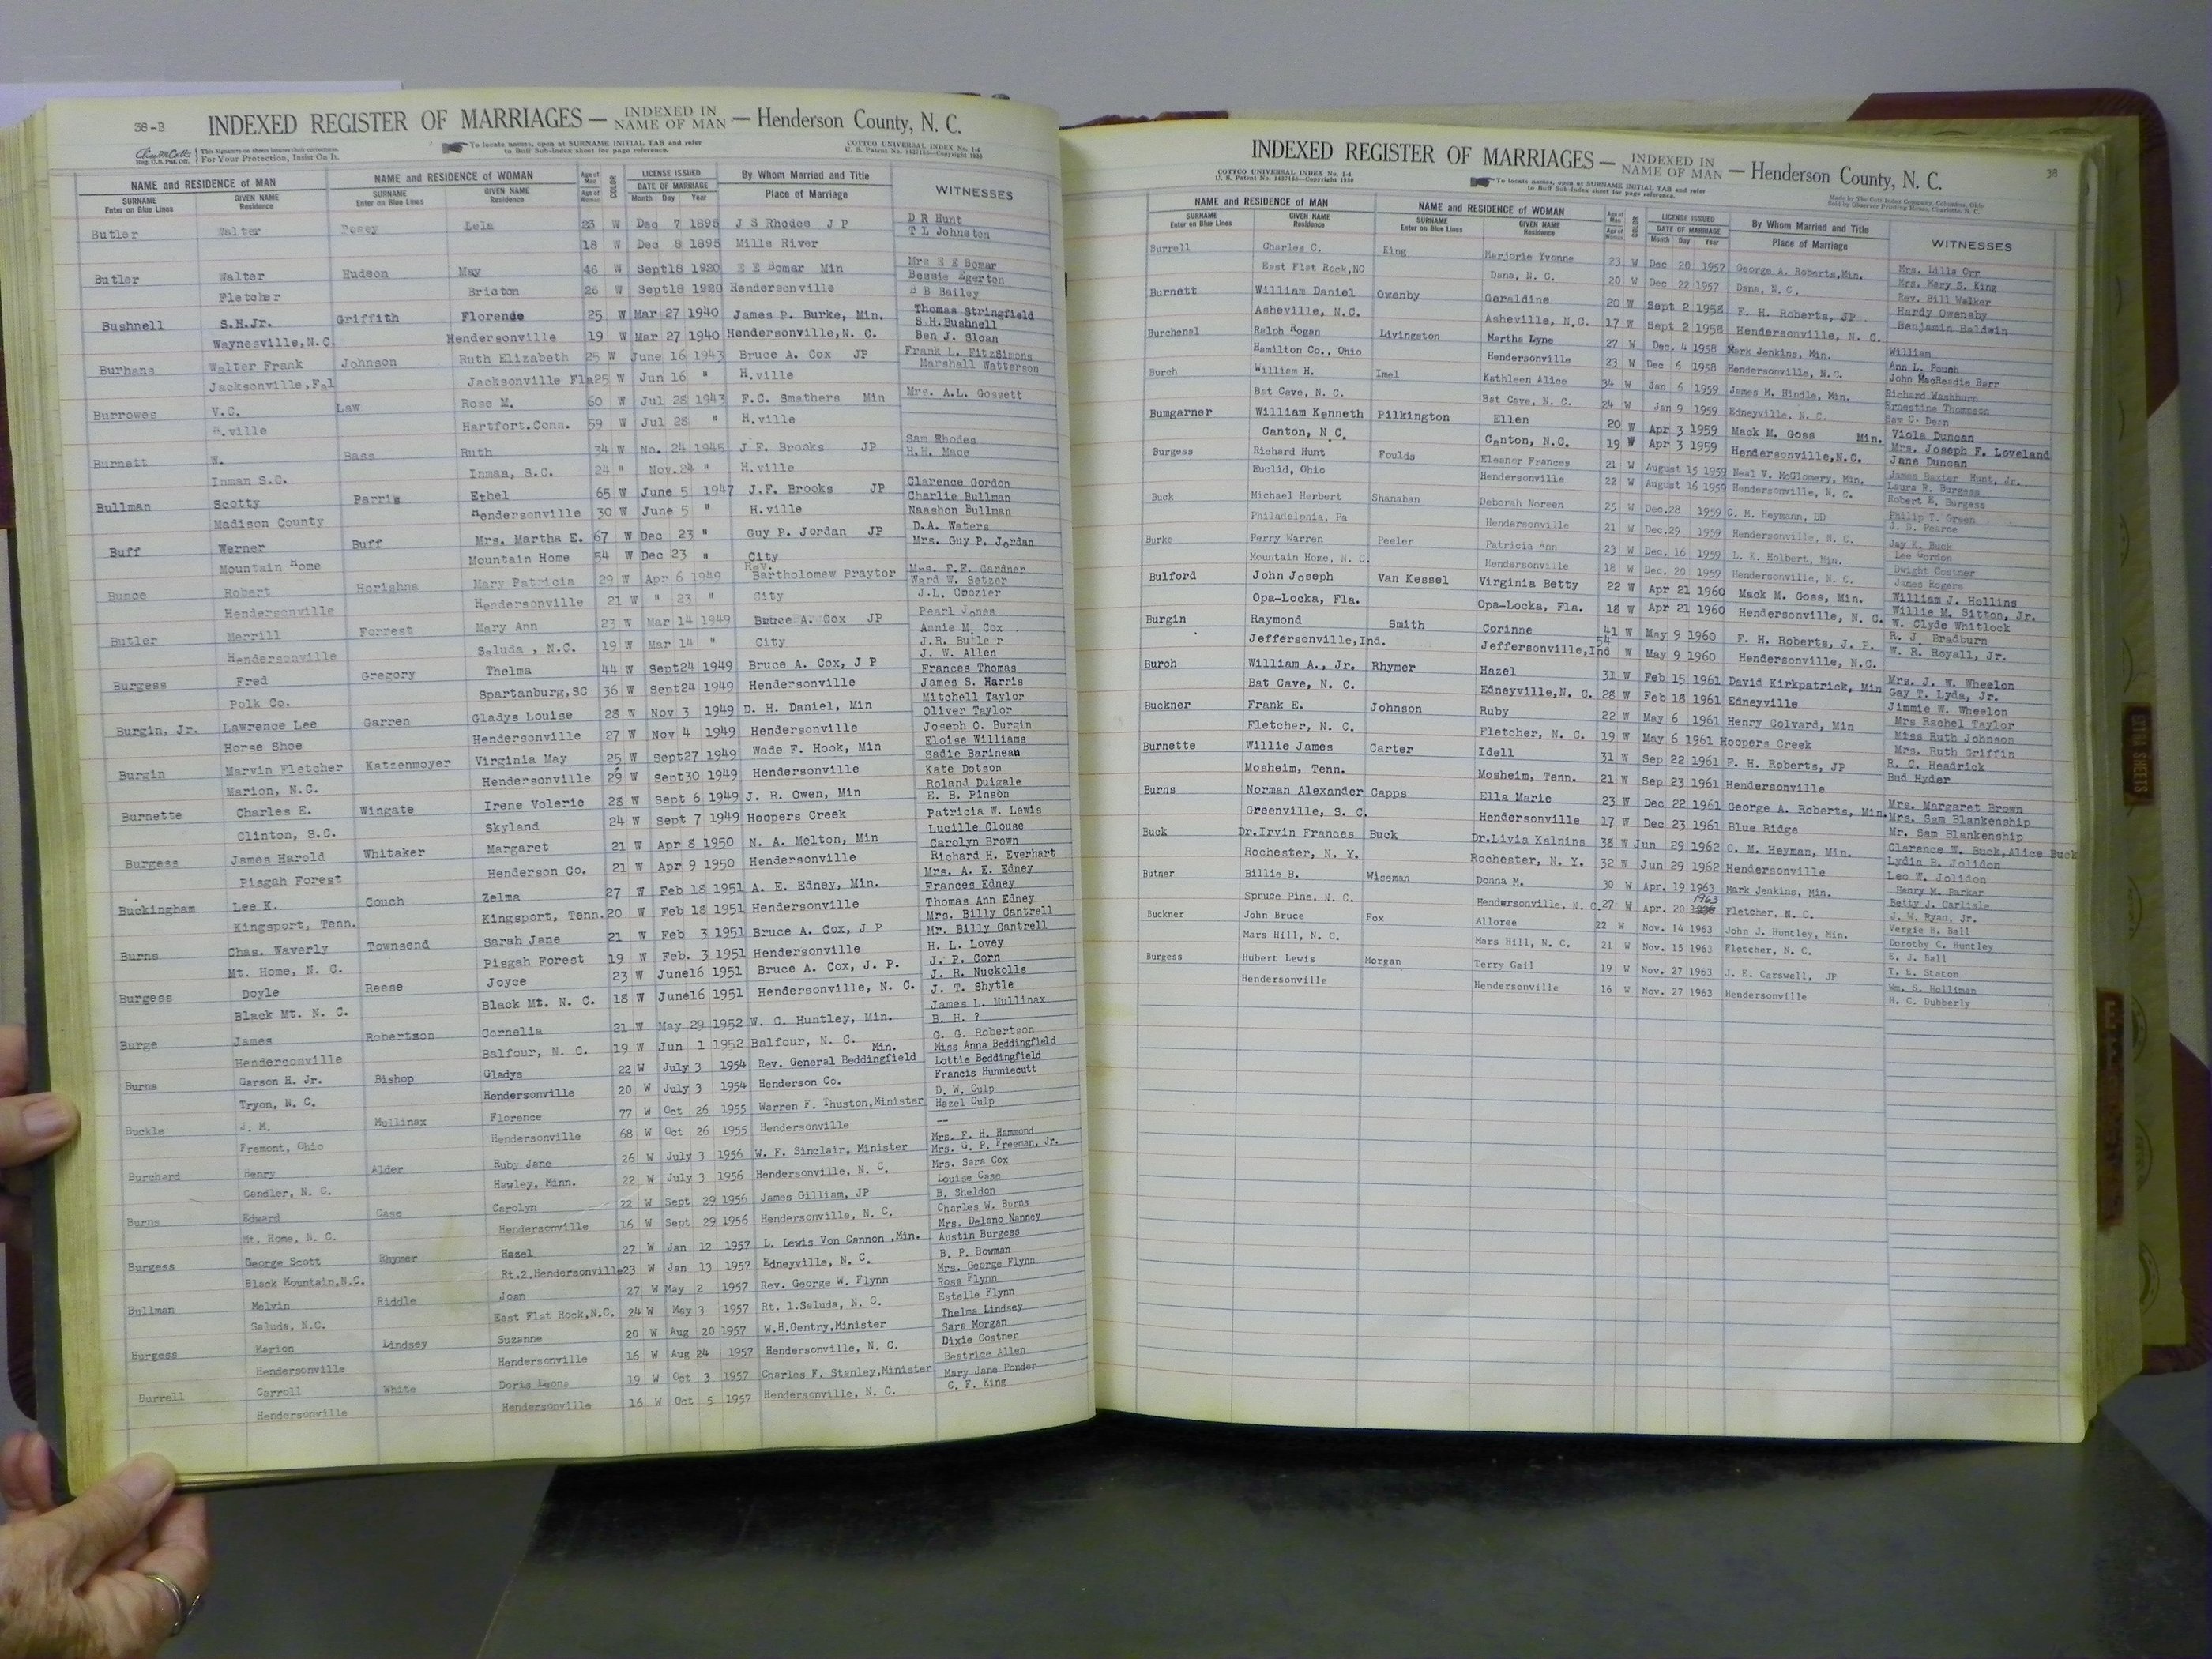 38-B
INDEXED REGISTER OF MARRIAGES — INDEXED IN NAME OF MAN — Henderson County, N. C.
This Signature on sheets insures their correctness.
Reg. U.S. Pat. Off. For Your Protection, Insist On It.
To locate names, open at SURNAME INITIAL TAB and refer
to Buff Sub-Index sheet for page reference.
COTTCO UNIVERSAL INDEX No. 1-4
NAME and RESIDENCE OF MAN NAME and RESIDENCE OF WOMAN Age of Man COLOR LICENSE ISSUED By Whom Married and Title WITNESSES
SURNAME Enter on Blue Lines GIVEN NAME Residence SURNAME Enter on Blue Lines GIVEN NAME Residence Age of Woman DATE OF MARRIAGE Month Day Year Place of Marriage
Butler Walter Posey Lela 23 W Dec 7 1895 J S Rhodes J P D R Hunt
18 W Dec 8 1895 Mills River T L Johnston
Butler Walter Hudson May 46 W Sept18 1920 E E Bomar Min Mrs E E Bomar
Bessie Egerton
Fletcher Bricton 26 W Sept18 1920 Hendersonville B B Bailey
Bushnell S.H.Jr. Griffith Florence 25 W Mar 27 1940 James P. Burke, Min. Thomas Stringfield
S.H.Bushnell
Waynesville,N.C. Hendersonville 19 W Mar 27 1940 Hendersonville,N. C. Ben J. Sloan
Burhans Walter Frank Johnson Ruth Elizabeth 25 W June 16 1943 Bruce A. Cox JP Frank L. FitzSimons
Marshall Watterson
Jacksonville,Fal Jacksonville Fla25 W Jun 16 " H.ville
Burrowes V.C. Law Rose M. 60 W Jul 28 1943 F.C. Smathers Min Mrs. A.L. Gossett
H.ville Hartfort.Conn. 59 W Jul 28 " H.ville
Burnett W. Bass Ruth 34 W No. 24 1945 J.F. Brooks JP Sam Rhodes
H.H. Mace
Inman S.C. Inman, S.C. 24 " Nov.24 " H.ville
Bullman Scotty Parris Ethel 65 W June 5 1947 J.F. Brooks JP Clarence Gordon
Charlie Bullman
Madison County Hendersonville 30 W June 5 " H.ville Naashon Bullman
Buff Werner Buff Mrs. Martha E. 67 W Dec 23 " Guy P. Jordan JP D.A. Waters
Mrs. Guy P. Jordan
Mountain Home Mountain Home 54 W Dec 23 " City
Bunce Robert Horishna Mary Patricia 29 W Apr 6 1949 Rev. Bartholomew Praytor Mrs. F.F. Gardner
Ward W. Setzer
Hendersonville Hendersonville 21 W " 23 " City J.L. Crozier
Butler Merrill Forrest Mary Ann 23 W Mar 14 1949 Bruce A. Cox JP Pearl Jones
Annie M. Cox
Hendersonville Saluda , N.C. 19 W Mar 14 " City J.R. Butler
J. W. Allen
Burgess Fred Gregory Thelma 44 W Sept24 1949 Bruce A. Cox, J P Frances Thomas
Polk Co. Spartanburg,SC 36 W Sept24 1949 Hendersonville James S. Harris
Mitchell Taylor
Burgin, Jr. Lawrence Lee Garren Gladys Louise 28 W Nov 3 1949 D. H. Daniel, Min Oliver Taylor
Horse Shoe Hendersonville 27 W Nov 4 1949 Hendersonville Joseph C. Burgin
Eloise Williams
Burgin Marvin Fletcher Katzenmoyer Virginia May 25 W Sept27 1949 Wade F. Hook, Min Sadie Barineau
Marion, N.C. Hendersonville 29 W Sept30 1949 Hendersonville Kate Dotson
Roland Duigale
Burnette Charles E. Wingate Irene Volerie 28 W Sept 6 1949 J. R. Owen, Min E. B. Pinson
Clinton, S.C. Skyland 24 W Sept 7 1949 Hoopers Creek Patricia W. Lewis
Lucille Clouse
Burgess James Harold Whitaker Margaret 21 W Apr 8 1950 N. A. Melton, Min Carolyn Brown
Pisgah Forest Henderson Co. 21 W Apr 9 1950 Hendersonville Richard H. Everhart
Mrs. A. E. Edney
Buckingham Lee K. Couch Zelma 27 W Feb 18 1951 A. E. Edney, Min. Frances Edney
Kingsport, Tenn. Kingsport, Tenn.20 W Feb 18 1951 Hendersonville Thomas Ann Edney
Mrs. Billy Cantrell
Burns Chas. Waverly Townsend Sarah Jane 21 W Feb 3 1951 Bruce A. Cox, J P Mr. Billy Cantrell
Mt. Home, N. C. Pisgah Forest 19 W Feb. 3 1951 Hendersonville H. L. Lovey
J. P. Corn
Burgess Doyle Reese Joyce 23 W June16 1951 Bruce A. Cox, J. P. J. R. Nuckolls
Black Mt. N. C. Black Mt. N. C. 18 W June16 1951 Hendersonville, N. C. J. T. Shytle
James L. Mullinax
Burge James Robertson Cornelia 21 W May 29 1952 W. C. Huntley, Min. B. H. ?
G. G. Robertson
Hendersonville Balfour, N. C. 19 W Jun 1 1952 Balfour, N. C. Miss Anna Beddingfield
Burns Garson H. Jr. Bishop Gladys 22 W July 3 1954 Rev. General Beddingfield Min. Lottie Beddingfield
Francis Hunniecutt
Tryon, N. C. Hendersonville 20 W July 3 1954 Henderson Co. D. W. Culp
Buckle J. M. Mullinax Florence 77 W Oct 26 1955 Warren F. Thuston,Minister Hazel Culp
--
Fremont, Ohio Hendersonville 68 W Oct 26 1955 Hendersonville Mrs. F. H. Hammond
Burchard Henry Alder Ruby Jane 26 W July 3 1956 W. F. Sinclair, Minister Mrs. G. P. Freeman, Jr.
Mrs. Sara Cox
Candler, N. C. Hawley, Minn. 22 W July 3 1956 Hendersonville, N. C. Louise Case
Burns Edward Case Carolyn 22 W Sept. 29 1956 James Gilliam, JP B. Sheldon
Charles W. Burns
Mt. Home, N. C. Hendersonville 16 W Sept. 29 1956 Hendersonville, N. C. Mrs. Delano Nanney
Burgess George Scott Rhymer Hazel 27 W Jan 12 1957 L. Lewis Von Cannon ,Min. Austin Burgess
B. P. Bowman
Black Mountain,N.C. Rt.2.Hendersonville23 W Jan 13 1957 Edneyville, N. C. Mrs. George Flynn
Bullman Melvin Riddle Joan 27 W May 2 1957 Rev. George W. Flynn Rosa Flynn
Estelle Flynn
Saluda, N.C. East Flat Rock,N.C. 24 W May 3 1957 Rt. 1.Saluda, N. C. Thelma Lindsey
Burgess Marion Lindsey Suzanne 20 W Aug 20 1957 W.H.Gentry,Minister Sara Morgan
Dixie Costner
Hendersonville Hendersonville 16 W Aug 24 1957 Hendersonville, N. C. Beatrice Allen
Burrell Carroll White Doris Leona 19 W Oct 3 1957 Charles F. Stanley,Minister Mary Jane Ponder
C. F. King
Hendersonville Hendersonville 16 W Oct 5 1957 Hendersonville, N. C.
INDEXED REGISTER OF MARRIAGES — INDEXED IN NAME OF MAN — Henderson County, N. C.
38
COTTCO UNIVERSAL INDEX No. 1-4
To locate names, open at SURNAME INITIAL TAB and refer
to Buff Sub-Index sheet for page reference.
Made by The Cott Index Company, Columbus, Ohio
Sold by Observer Printing House, Charlotte, N. C.
NAME and RESIDENCE OF MAN NAME and RESIDENCE OF WOMAN Age of Man COLOR LICENSE ISSUED By Whom Married and Title WITNESSES
SURNAME Enter on Blue Lines GIVEN NAME Residence SURNAME Enter on Blue Lines GIVEN NAME Residence Age of Woman DATE OF MARRIAGE Month Day Year Place of Marriage
Burrell Charles C. King Marjorie Yvonne 23 W Dec 20 1957 George A. Roberts,Min. Mrs. Lilla Orr
Mrs. Mary S. King
East Flat Rock,NC Dana, N. C. 20 W Dec 22 1957 Dana, N. C. Rev. Bill Walker
Burnett William Daniel Owenby Geraldine 20 W Sept 2 1958 F. H. Roberts, JP Hardy Owensby
Benjamin Baldwin
Asheville, N.C. Asheville, N.C. 17 W Sept 2 1958 Hendersonville, N. C.
Burchenal Ralph Hogan Livingston Martha Lyne 27 W Dec. 4 1958 Mark Jenkins, Min. William
Ann L. Pouch
Hamilton Co., Ohio Hendersonville 23 W Dec 6 1958 Hendersonville, N. C. John MacReadie Barr
Burch William H. Imel Kathleen Alice 34 W Jan 6 1959 James M. Hindle, Min. Richard Washburn
Ernestine Thompson
Bat Cave, N. C. Bat Cave, N. C. 24 W Jan 9 1959 Edneyville, N. C. Sam C. Dean
Bumgarner William Kenneth Pilkington Ellen 20 W Apr 3 1959 Mack M. Goss Min. Viola Duncan
Mrs. Joseph F. Loveland
Canton, N C. Canton, N.C. 19 W Apr 3 1959 Hendersonville,N.C. Jane Duncan
Burgess Richard Hunt Foulds Eleanor Frances 21 W August 15 1959 Neal V. McGlomery, Min. James Baxter Hunt, Jr.
Laura R. Burgess
Euclid, Ohio Hendersonville 22 W August 16 1959 Hendersonville, N. C. Robert E. Burgess
Buck Michael Herbert Shanahan Deborah Noreen 25 W Dec.28 1959 C. M. Heymann, DD Philip T. Green
J. D. Pearce
Philadelphia, Pa Hendersonville 21 W Dec.29 1959 Hendersonville, N. C. Jay K. Buck
Burke Perry Warren Peeler Patricia Ann 23 W Dec. 16 1959 L. E. Holbert, Min. Lee Gordon
Dwight Costner
Mountain Home, N. C. Hendersonville 18 W Dec. 20 1959 Hendersonville, N. C. James Rogers
Bulford John Joseph Van Kessel Virginia Betty 22 W Apr 21 1960 Mack M. Goss, Min. William J. Hollins
Willie M. Sitton, Jr.
Opa-Locka, Fla. Opa-Locka, Fla. 18 W Apr 21 1960 Hendersonville, N. C. W. Clyde Whitlock
Burgin Raymond Smith Corinne 41 W May 9 1960 F. H. Roberts, J. P. R. J. Bradburn
Jeffersonville,Ind. Jeffersonville,Ind 54 W May 9 1960 Hendersonville, N.C. W. R. Royall, Jr.
Burch William A., Jr. Rhymer Hazel 31 W Feb 15 1961 David Kirkpatrick, Min Mrs. J. W. Wheelon
Gay T. Lyda, Jr.
Bat Cave, N. C. Edneyville,N. C. 28 W Feb 18 1961 Edneyville Jimmie W. Wheelon
Buckner Frank E. Johnson Ruby 22 W May 6 1961 Henry Colvard, Min Mrs Rachel Taylor
Miss Ruth Johnson
Fletcher, N. C. Fletcher, N. C. 19 W May 6 1961 Hoopers Creek Mrs. Ruth Griffin
Burnette Willie James Carter Idell 31 W Sep 22 1961 F. H. Roberts, JP R. C. Headrick
Bud Hyder
Mosheim, Tenn. Mosheim, Tenn. 21 W Sep 23 1961 Hendersonville
Burns Norman Alexander Capps Ella Marie 23 W Dec 22 1961 George A. Roberts, Min. Mrs. Margaret Brown
Mrs. Sam Blankenship
Greenville, S. C. Hendersonville 17 W Dec 23 1961 Blue Ridge Mr. Sam Blankenship
Buck Dr.Irvin Frances Buck Dr.Livia Kalnins 38 W Jun 29 1962 C. M. Heyman, Min. Clarence W. Buck,Alice Buck
Lydia B. Jolidon
Rochester, N. Y. Rochester, N. Y. 32 W Jun 29 1962 Hendersonville Leo W. Jolidon
Butner Billie B. Wiseman Donna M. 30 W Apr. 19 1963 Mark Jenkins, Min. Henry M. Parker
Betty J. Carlisle
Spruce Pine, N. C. Hendersonville, N. C.27 W Apr. 20 1963 Fletcher, N. C. J. W. Ryan, Jr.
Buckner John Bruce Fox Alloree 22 W Nov. 14 1963 John J. Huntley, Min. Vergie B. Ball
Dorothy C. Huntley
Mars Hill, N. C. Mars Hill, N. C. 21 W Nov. 15 1963 Fletcher, N. C. E. J. Ball
Burgess Hubert Lewis Morgan Terry Gail 19 W Nov. 27 1963 J. E. Carswell, JP T. E. Staton
Wm. S. Holliman
Hendersonville Hendersonville 16 W Nov. 27 1963 Hendersonville H. C. Dubberly
EXTRA SHEETS